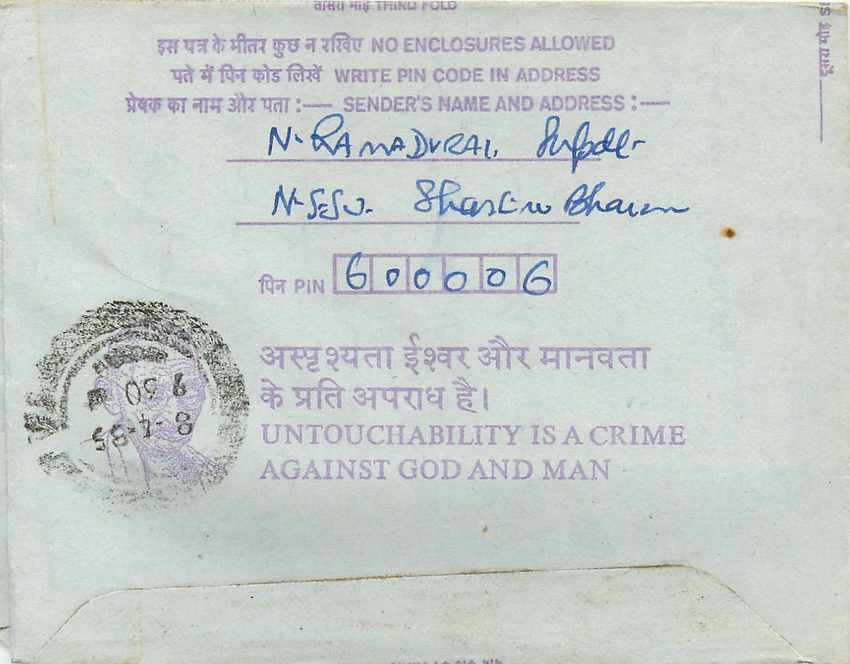 तीसरा मोड़ THIRD FOLD
इस पत्र के भीतर कुछ न रखिए NO ENCLOSURES ALLOWED
पते में पिन कोड लिखें WRITE PIN CODE IN ADDRESS
प्रेषक का नाम और पता :— SENDER'S NAME AND ADDRESS :—
N. RAMADURAI,
N.S.S.O. Shastri Bhavan
पिन PIN 600006
अस्पृश्यता ईश्वर और मानवता
के प्रति अपराध है।
UNTOUCHABILITY IS A CRIME
AGAINST GOD AND MAN
9 30
8-4-85